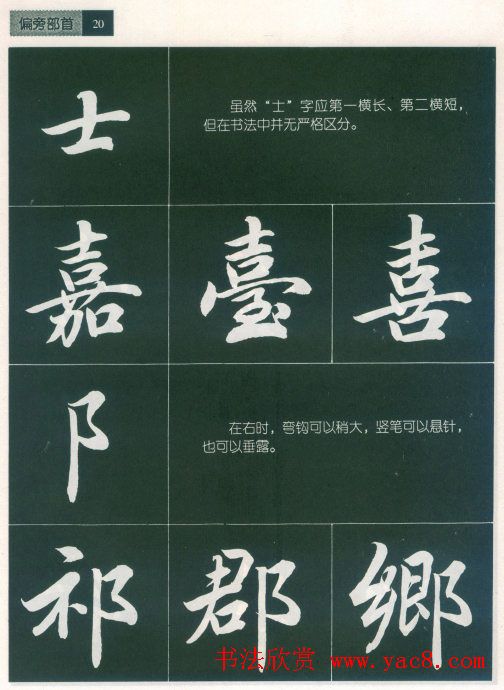 偏旁部首 20
士
虽然“士”字应第一横长、第二横短，
但在书法中并无严格区分。
嘉 臺 喜
阝
在右时，弯钩可以稍大，竖笔可以悬针，
也可以垂露。
祁 郡 鄉
书法欣赏 www.yac8.com